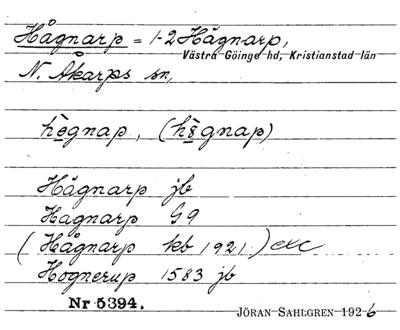 Hågnarp = 1-2 Hågnarp,
Västra Göinge hd, Kristianstad län
N. Åkarps sn,
hògnap, (hògnap)
Hågnarp jb
Hagnarp G9
(Hågnarp kb 1921) exc
Hognerup 1583 jb
Nr 5394.
JÖRAN SAHLGREN 1926